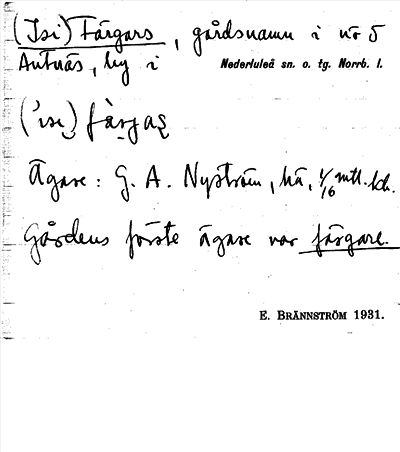 (Isi) Färgars, gårdsnamn i nr 5
Antnäs, by i Nederluleå sn. o. tg. Norrb. l.
Ägare: G. A. Nyström, hä, 1/16 mtl.
Gårdens förste ägare var färgare.
E. BRÄNNSTRÖM 1931.